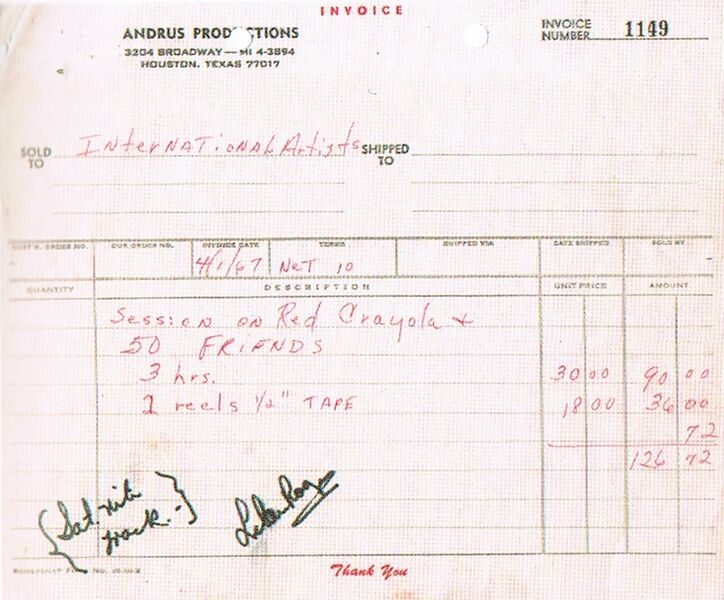 INVOICE
ANDRUS PRODUCTIONS
3204 BROADWAY — MI 4-3894
HOUSTON, TEXAS 77017
INVOICE NUMBER 1149
SOLD TO InterNATioNAL Artists SHIPPED TO
CUST'S ORDER NO. OUR ORDER NO. INVOICE DATE TERMS SHIPPED VIA DATE SHIPPED SOLD BY
4/1/67 NeT 10
QUANTITY DESCRIPTION UNIT PRICE AMOUNT
Session on Red Crayola +
50 FRIENDS
3 hrs. 30 00 90 00
2 reels 1/2" TAPE 18 00 36 00
72
126 72
{Sat. nite
track.-}
Thank You